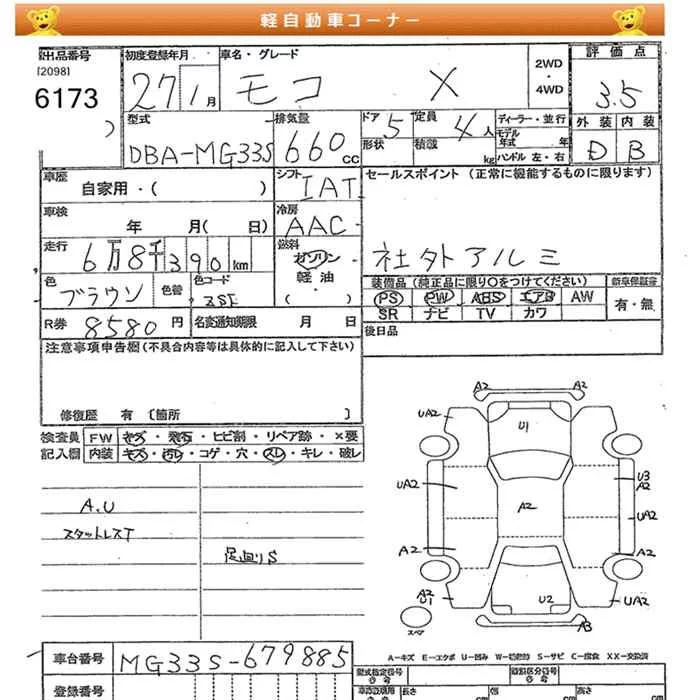 軽自動車コーナー
出品番号
[2098]
6173
初度登録年月
27 1月
車名・グレード
モコ X
2WD
・
4WD
評価点
3.5
型式
DBA-MG33S
排気量
660cc
ドア 5
定員 4人
形状
積載 kg
ディーラー・並行
モデル年式 年
ハンドル 左・右
外装 内装
D B
車歴
自家用・( )
シフト
IAT
セールスポイント (正常に機能するものに限ります)
社外アルミ
車検
年 月( 日)
冷房
AAC
走行
6万8千390km
燃料
ガソリン
軽油・
( )
色
ブラウン
色替
色コード
装備品 (純正品に限り〇をつけてください)
新車保証書
PS PW ABS エアB AW
有・無
SR ナビ TV カワ
R券 8580円
名変通知期限 月 日
後日品
注意事項申告欄 (不具合内容等は具体的に記入して下さい)
修復歴 有 〔箇所 〕
検査員
記入欄
FW キズ・飛石・ヒビ割・リペア跡・×要
内装 キズ・汚れ・コゲ・穴・スレ・キレ・破レ
A.U
スタットレスT
足廻りS
A2 A2
UA2 U1
UA2 A2 U3 A2
UA2
A2 A2
A2 U1 U2 UA2
A3
スペア
A-キズ E-エクボ U-凹み W-補修跡 S-サビ C-腐食 XX-交換済
車台番号 MG33S-679885
登録番号
型式指定番号
類別区分番号
長さ cm
幅 cm
高さ cm